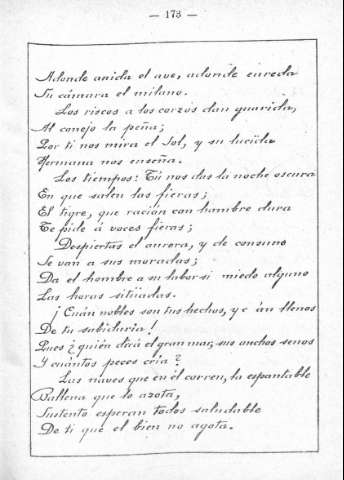 — 173 —
Adonde anida el ave, adonde enreda
Su cámara el milano.
Los riscos a los corzos dan guarida,
Al conejo la peña;
Por ti nos mira el Sol, y su lucida
Hermana nos enseña.
Los tiempos: Tú nos das la noche oscura
En que salen las fieras;
El tigre, que ración con hambre dura
Te pide á voces fieras;
Despiertas el aurora, y de consuno
Se van a sus moradas;
Da el hombre a su labor sí miedo alguno
Las horas sitüadas.
¡Cuán nobles son tus hechos, y cuán llenos
De tu sabiduria!
Pues ¿quién dirá el gran mar, sus anchos senos
Y cuántos peces cria?
Las naves que en él corren, la espantable
Ballena que lo azota,
Sustento esperan todos saludable
De ti que el bien no agota.